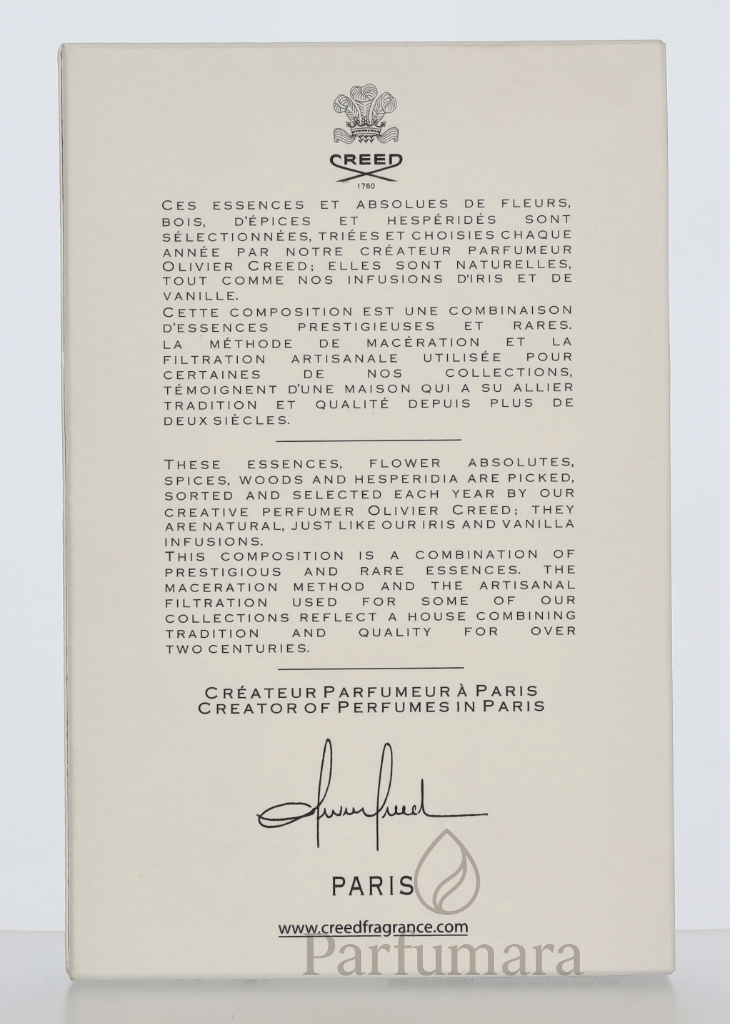 CREED
1760
CES ESSENCES ET ABSOLUES DE FLEURS,
BOIS, D'ÉPICES ET HESPÉRIDÉS SONT
SÉLECTIONNÉES, TRIÉES ET CHOISIES CHAQUE
ANNÉE PAR NOTRE CRÉATEUR PARFUMEUR
OLIVIER CREED; ELLES SONT NATURELLES,
TOUT COMME NOS INFUSIONS D'IRIS ET DE
VANILLE.
CETTE COMPOSITION EST UNE COMBINAISON
D'ESSENCES PRESTIGIEUSES ET RARES.
LA MÉTHODE DE MACÉRATION ET LA
FILTRATION ARTISANALE UTILISÉE POUR
CERTAINES DE NOS COLLECTIONS,
TÉMOIGNENT D'UNE MAISON QUI A SU ALLIER
TRADITION ET QUALITÉ DEPUIS PLUS DE
DEUX SIÈCLES.
THESE ESSENCES, FLOWER ABSOLUTES,
SPICES, WOODS AND HESPERIDIA ARE PICKED,
SORTED AND SELECTED EACH YEAR BY OUR
CREATIVE PERFUMER OLIVIER CREED; THEY
ARE NATURAL, JUST LIKE OUR IRIS AND VANILLA
INFUSIONS.
THIS COMPOSITION IS A COMBINATION OF
PRESTIGIOUS AND RARE ESSENCES. THE
MACERATION METHOD AND THE ARTISANAL
FILTRATION USED FOR SOME OF OUR
COLLECTIONS REFLECT A HOUSE COMBINING
TRADITION AND QUALITY FOR OVER
TWO CENTURIES.
CRÉATEUR PARFUMEUR À PARIS
CREATOR OF PERFUMES IN PARIS
Olivier Creed
PARIS
www.creedfragrance.com
Parfumara